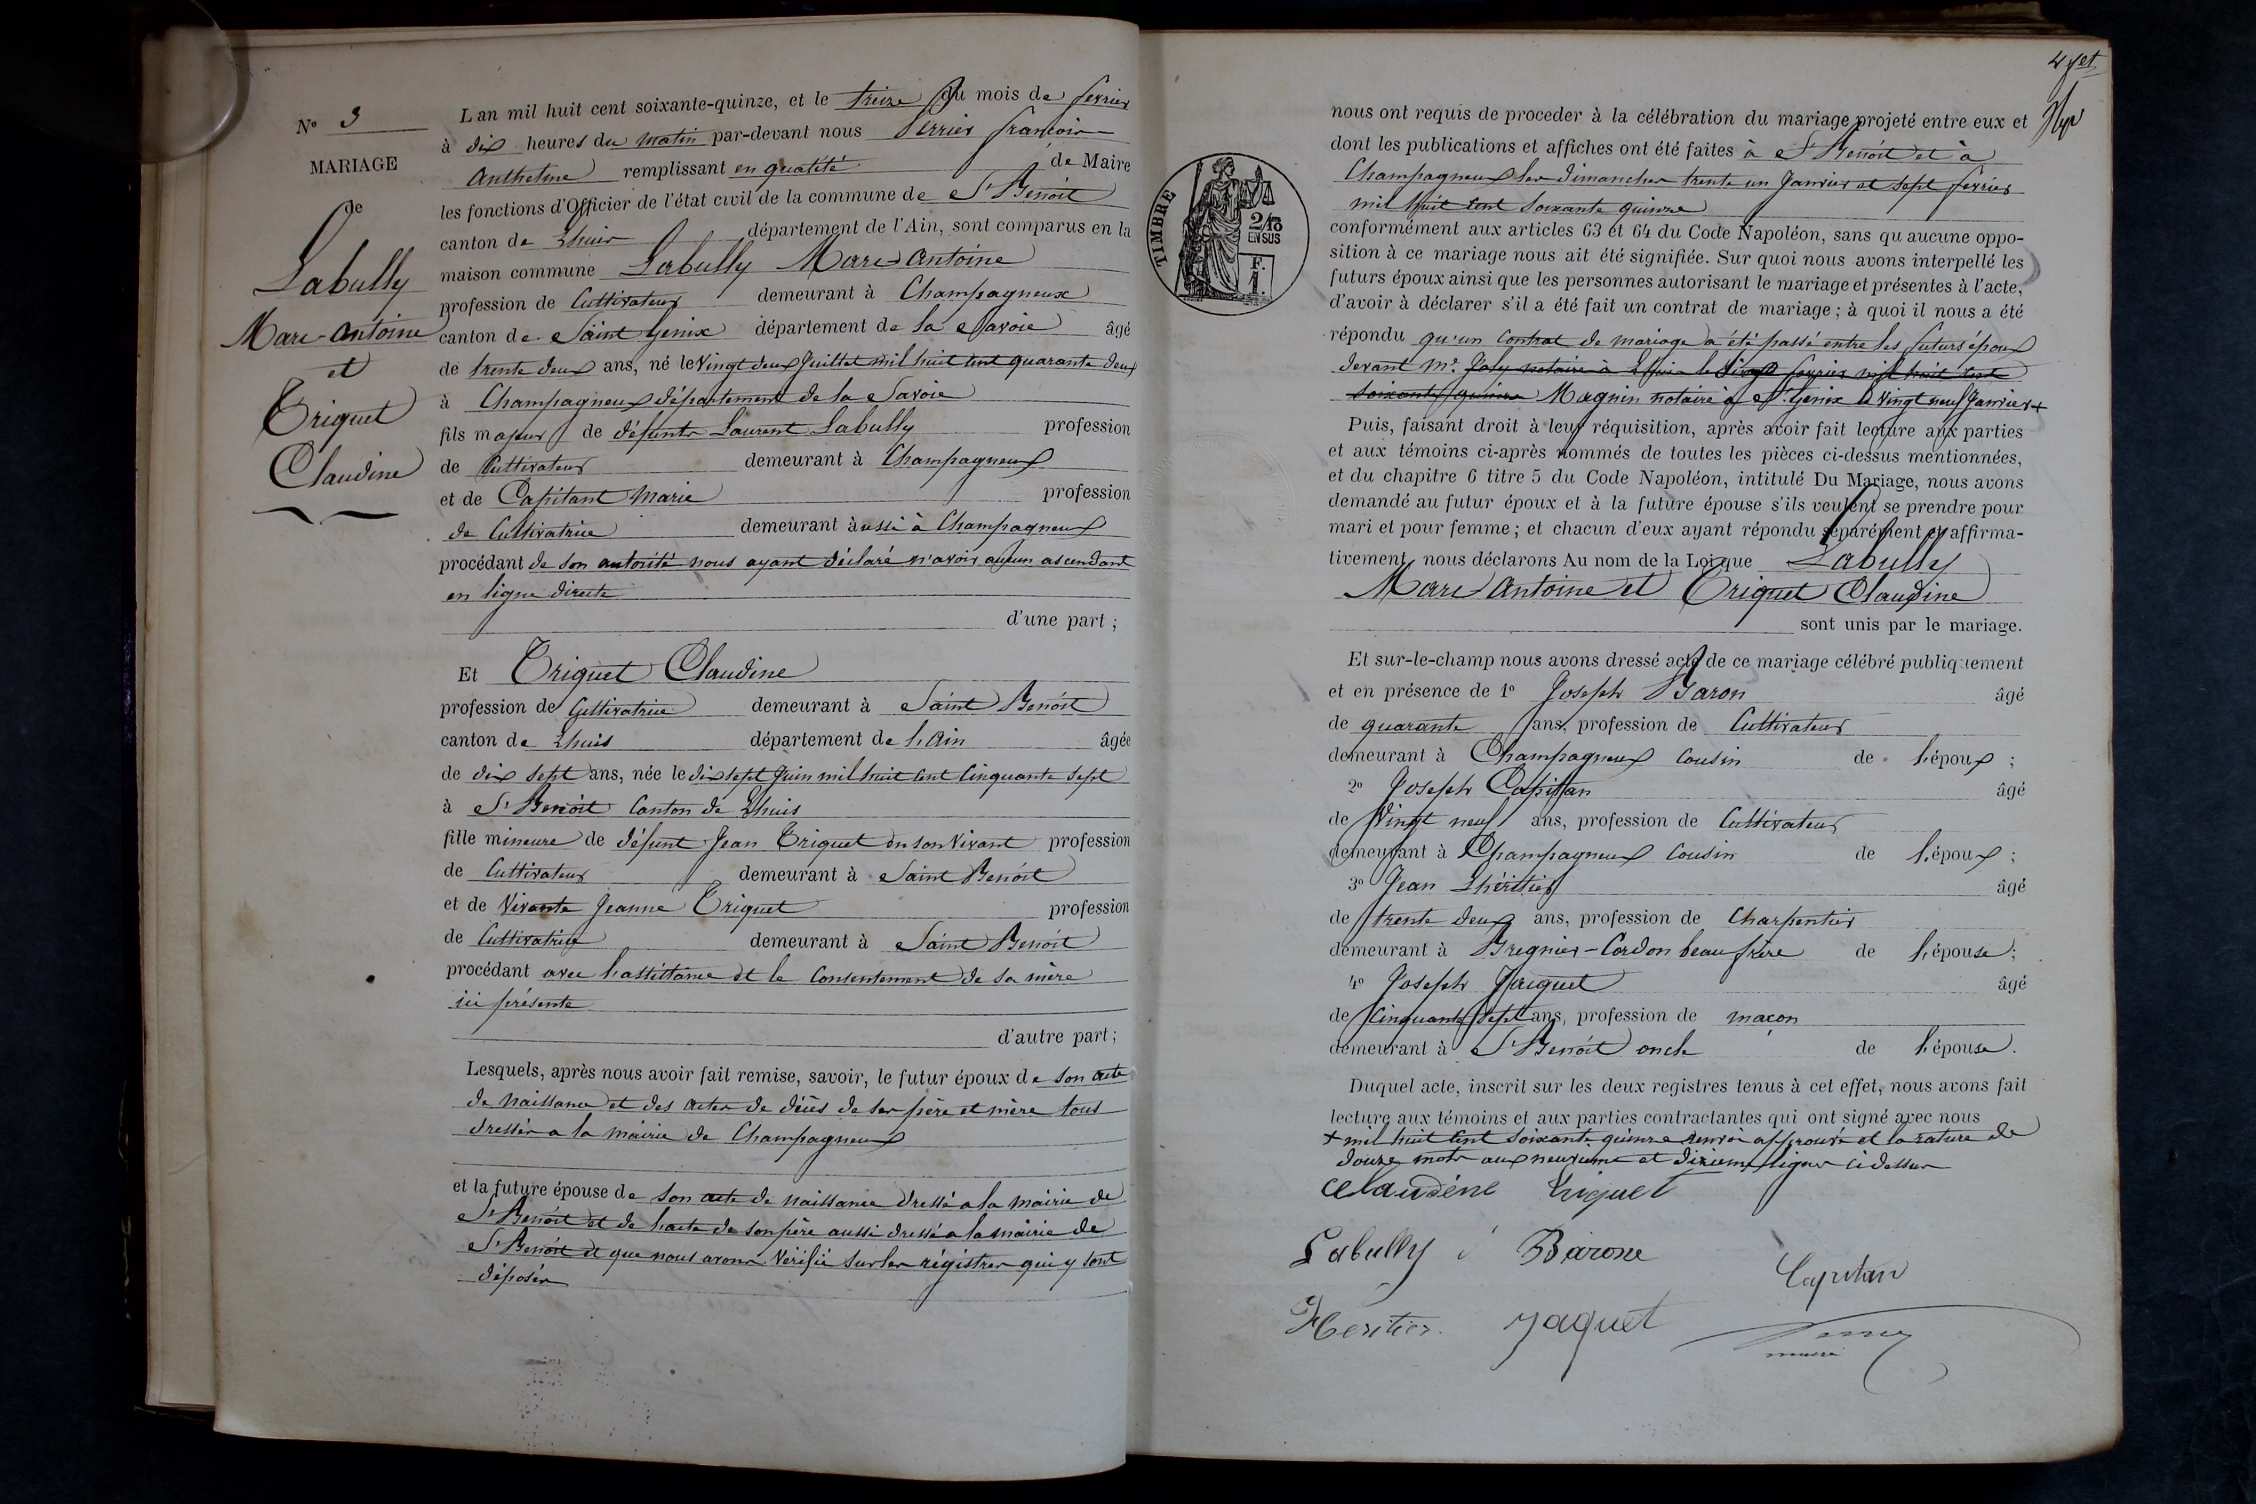 N° 3
MARIAGE
De
Labully
Marc-Antoine
et
Triquet
Claudine
L an mil huit cent soixante-quinze, et le treize du mois de fevrier
à dix heures du matin par-devant nous Perrier françois
Anthelme remplissant en qualité de Maire
les fonctions d'Officier de l'état civil de la commune de St Benoit
canton de Lhuis département de l'Ain, sont comparus en la
maison commune Labully Marc Antoine
profession de Cultivateur demeurant à Champagneux
canton de Saint Genix département de la Savoie âgé
de trente deux ans, né le Vingt deux Juillet mil huit cent quarante deux
à Champagneux département de la Savoie
fils majeur de défunts Laurent Labully profession
de Cultivateur demeurant à Champagneux
et de Capitant Marie profession
de Cultivatrice demeurant aussi à Champagneux
procédant de son autorité nous ayant déclaré n'avoir aucun ascendant
en ligne directe
d'une part ;
Et Triquet Claudine
profession de Cultivatrice demeurant à Saint Benoit
canton de Lhuis département de l'Ain âgée
de dix sept ans, née le dix sept Juin mil huit cent Cinquante sept
à St Benoit Canton de Lhuis
fille mineure de défunt Jean Triquet en son Vivant profession
de Cultivateur demeurant à Saint Benoit
et de Vivante Jeanne Triquet profession
de Cultivatrice demeurant à Saint Benoit
procédant avec l'assistance et le Consentement de sa mère
ici présente
d'autre part ;
Lesquels, après nous avoir fait remise, savoir, le futur époux de son acte
de Naissance et des actes de décès de ses père et mère tous
dressés a la mairie de Champagneux
et la future épouse de son acte de Naissance dressé a la mairie de
St Benoit et de l'acte de son père aussi dressé a la mairie de
St Benoit et que nous avons Vérifié sur les régistres qui y sont
déposés
4 fet
TIMBRE
2/10
EN SUS
F.
1.
nous ont requis de proceder à la célébration du mariage projeté entre eux et
dont les publications et affiches ont été faites à St Benoit et à
Champagneux les dimanches trente un Janvier et sept fevrier
mil huit cent soixante quinze
conformément aux articles 63 et 64 du Code Napoléon, sans qu aucune oppo-
sition à ce mariage nous ait été signifiée. Sur quoi nous avons interpellé les
futurs époux ainsi que les personnes autorisant le mariage et présentes à l'acte,
d'avoir à déclarer s'il a été fait un contrat de mariage ; à quoi il nous a été
répondu qu'un Contrat de mariage a été passé entre les futurs époux
devant Me Joly notaire à Lhuis le fevrier mil huit cent
soixante quinze Magnin notaire à St Genix le Vingt neuf Janvier +
Puis, faisant droit à leur réquisition, après avoir fait lecture aux parties
et aux témoins ci-après nommés de toutes les pièces ci-dessus mentionnées,
et du chapitre 6 titre 5 du Code Napoléon, intitulé Du Mariage, nous avons
demandé au futur époux et à la future épouse s'ils veulent se prendre pour
mari et pour femme ; et chacun d'eux ayant répondu séparément et affirma-
tivement, nous déclarons Au nom de la Loi que Labully
Marc Antoine et Triquet Claudine
sont unis par le mariage.
Et sur-le-champ nous avons dressé acte de ce mariage célébré publiquement
et en présence de 1° Joseph Baron âgé
de quarante ans, profession de Cultivateur
demeurant à Champagneux Cousin de l'époux ;
2° Joseph Capittan âgé
de Vingt neuf ans, profession de Cultivateur
demeurant à Champagneux Cousin de l'époux ;
3° Jean Lhéritier âgé
de trente deux ans, profession de Charpentier
demeurant à Bregnier-Cordon beau frère de l'épouse ;
4° Joseph Jaiquet âgé
de Cinquante Sept ans, profession de maçon
demeurant à St Benoit oncle de l'épouse.
Duquel acte, inscrit sur les deux registres tenus à cet effet, nous avons fait
lecture aux témoins et aux parties contractantes qui ont signé avec nous
+ mil huit cent soixante quinze renvoi approuvé et la rature de
douze mots aux neuvieme et dixieme lignes ci dessus
Claudéne Triquet
Labully Barone
Capitan
Heritier Jaquet
maire